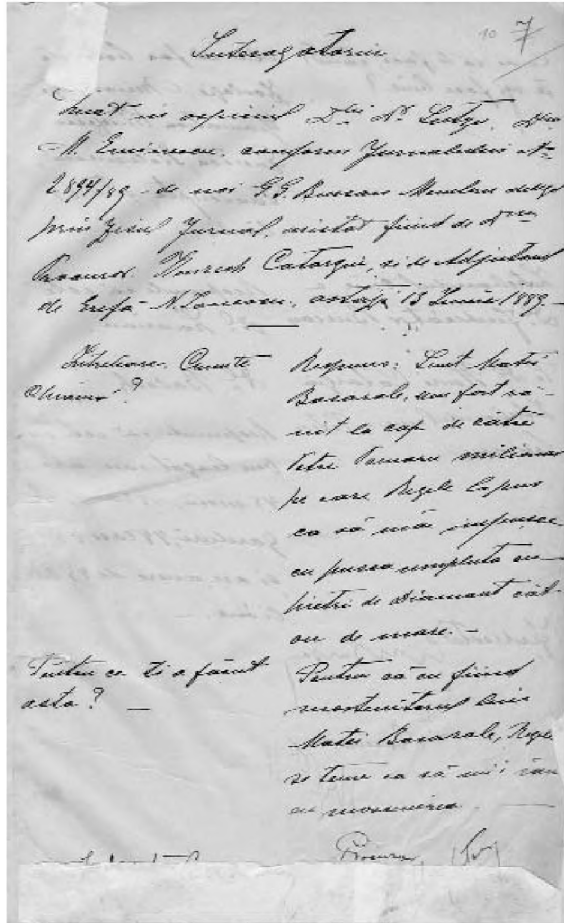 10 7
Interogatoriu
luat în ospiciul Dlui Dr Sutzu, Dlui
M. Eminescu, conform Jurnalului No
2894/89 de noi G.G. Bursan Membru delegat
prin zisul Jurnal, asistat fiind de Dnu
Procuror Marcel Catargiu, si de Adjutant
de Grefă N. astazi 13 Iunie 1889 —
Intrebare. Cumte
chiama?
Respuns: Sunt Matei
Basarab, am fost ră-
nit la cap de către
Petre Poenaru milionar
pe care Regele l'a pus
ca să mă impusce
cu pusca umpluta cu
pietri de diamant cât
ou de mare. —
Pentru ce ti a făcut
asta? —
Pentru că eu fiind
mostenitorul lui
Matei Basarab, Regele
se teme ca să nu'i iau
eu mostenirea. —
Procuror